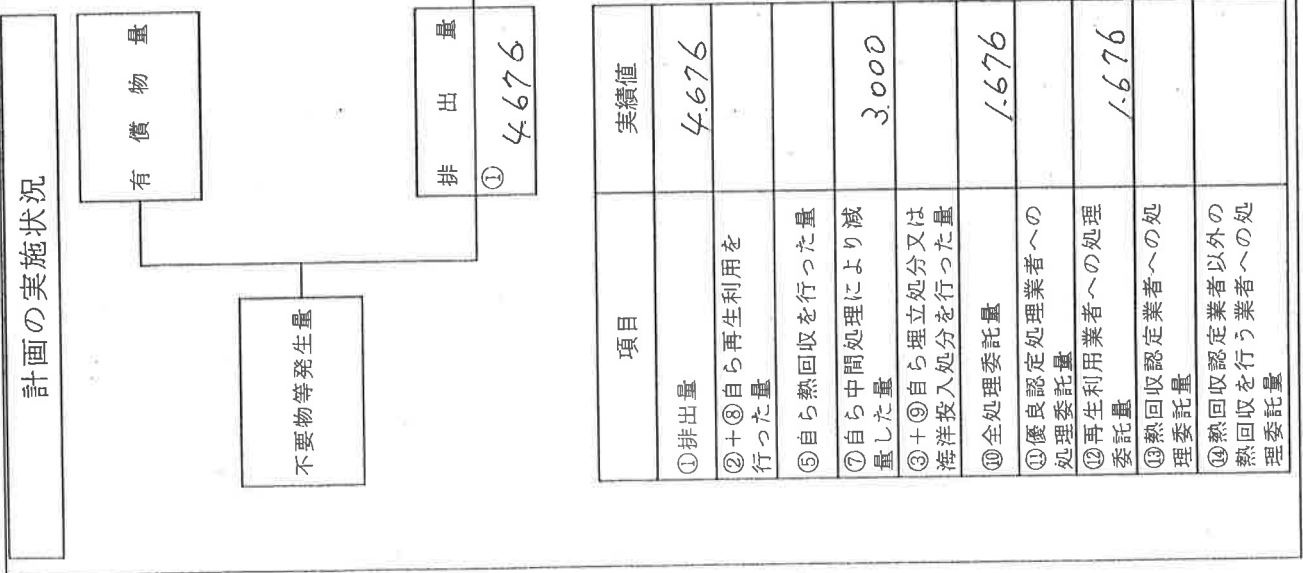 計画の実施状況
有償物量
不要物等発生量
排出量
①
4.676
項目
実績値
①排出量
4.676
②+⑧自ら再生利用を
行った量
⑤自ら熱回収を行った量
⑦自ら中間処理により減
量した量
3.000
③+⑨自ら埋立処分又は
海洋投入処分を行った量
⑩全処理委託量
1.676
⑪優良認定処理業者への
処理委託量
⑫再生利用業者への処理
委託量
1.676
⑬熱回収認定業者への処
理委託量
⑭熱回収認定業者以外の
熱回収を行う業者への処
理委託量